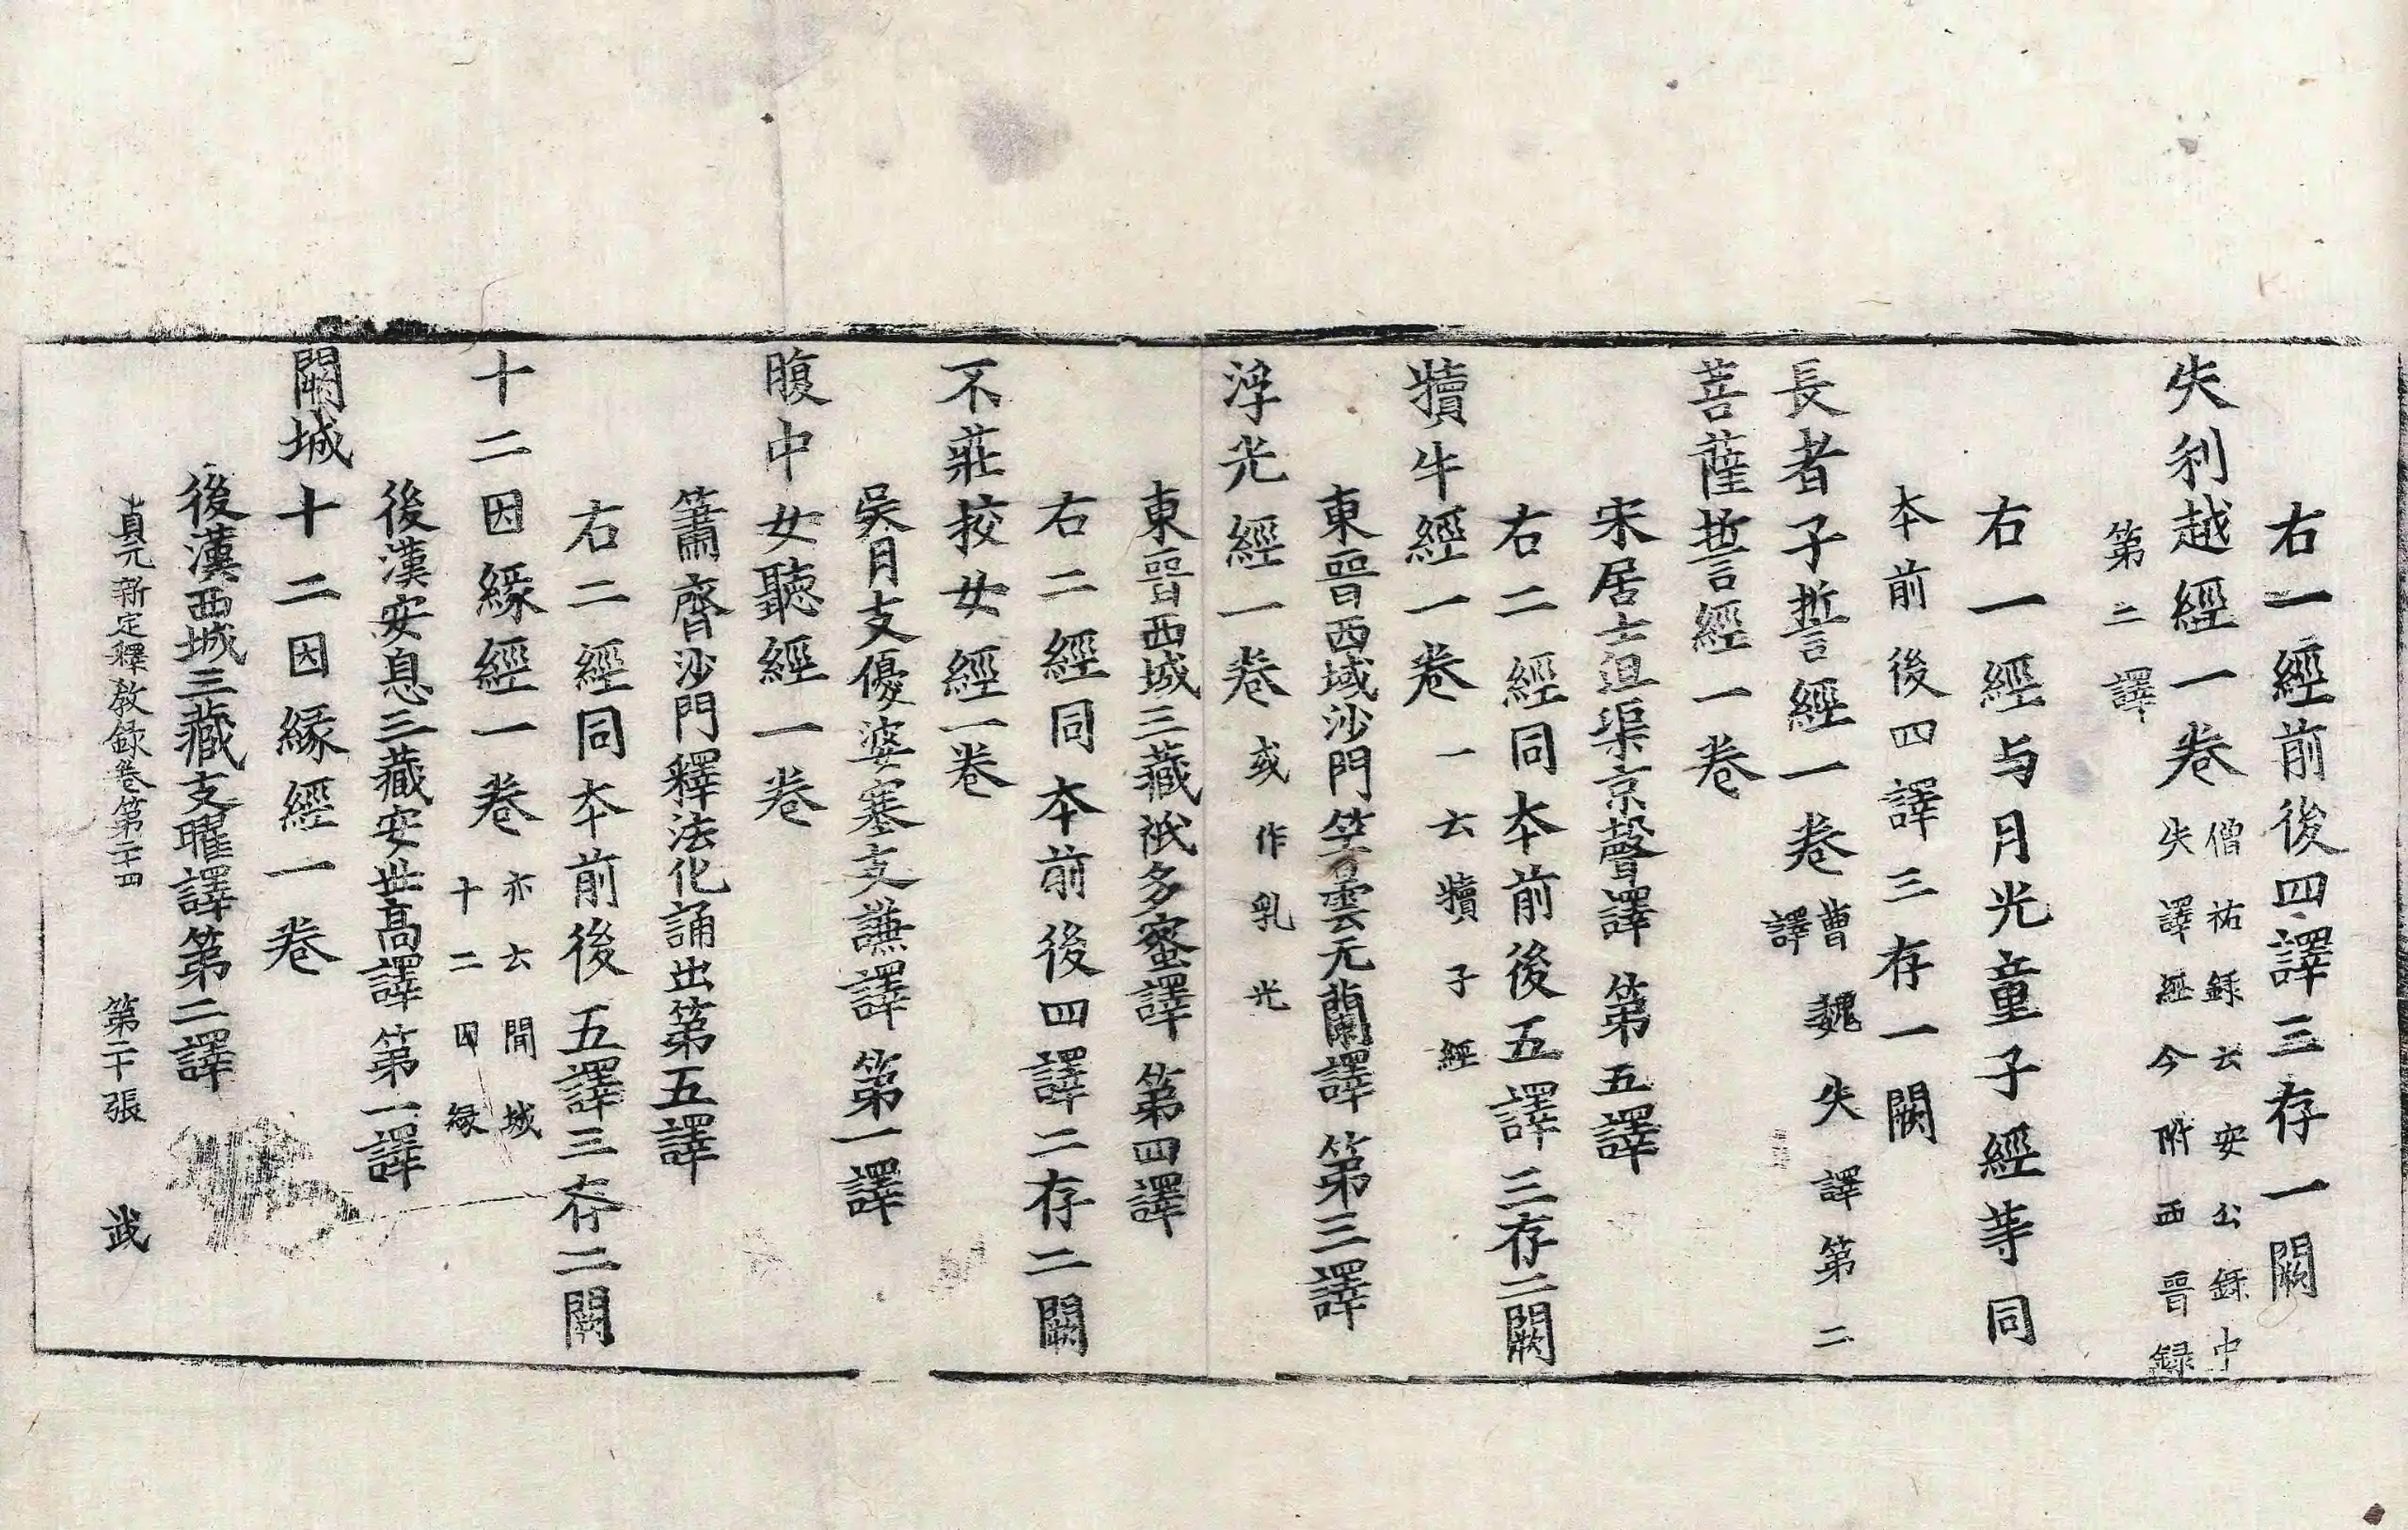 右一經前後四譯三存一闕
失利越經一卷僧祐録云安公録中失譯經今附西晉録
第二譯
右一經与月光童子經等同
本前後四譯三存一闕
長者子誓經一卷曹魏失譯第二譯
菩薩誓經一卷
宋居士沮渠京聲譯第五譯
右二經同本前後五譯三存二闕
犢牛經一卷一云犢子經
東晉西域沙門竺曇无蘭譯第三譯
浮光經一卷或作乳光
東晉西域三藏祇多蜜譯第四譯
右二經同本前後四譯二存二闕
不莊挍女經一卷
吳月支優婆塞支謙譯第一譯
腹中女聽經一卷
簫齊沙門釋法化誦出第五譯
右二經同本前後五譯三存二闕
十二因緣經一卷亦云聞城十二因緣
後漢安息三藏安世高譯第一譯
闕城十二因緣經一卷
後漢西域三藏支曜譯第二譯
貞元新定釋教録卷第二十四 第二十張 武